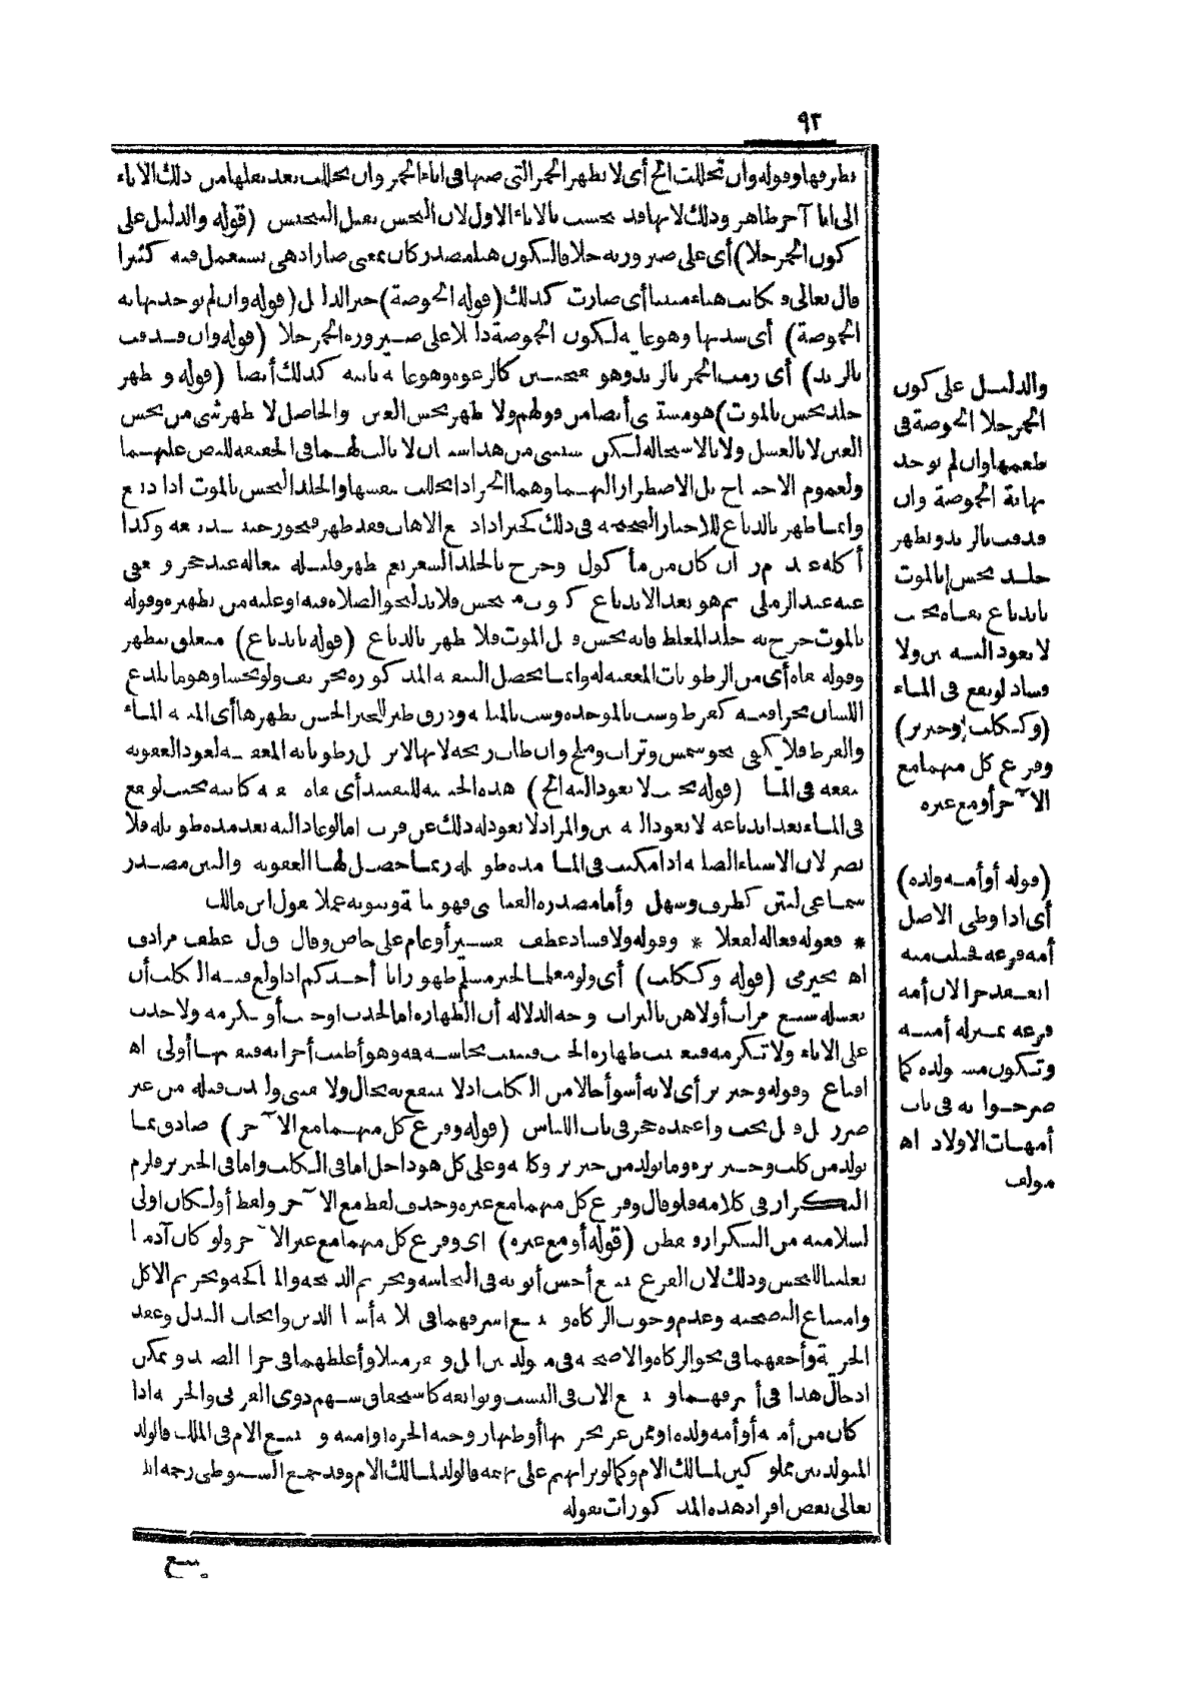 ٩٢
بطرفها وقوله وان تخللت الخ أى لا يطهر الخمر التى صبها فى اناء الخمر وان تخللت بعد نقلها من ذلك الاناء
الى اناء آخر طاهر وذلك لانها قد نجست بالاناء الاول لان النجس يقبل التنجيس (قوله والدليل على
كون الخمر خلا) أى على صيرورته خلا فالكون هنا مصدر كان بمعنى صار اذ هى تستعمل فيه كثيرا
قال تعالى وكانت هباء منبثا أى صارت كذلك (قوله الحموضة) خبر الدليل (قوله وان لم توجد نهاية
الحموضة) أى شدتها وهو غاية لكون الحموضة دالا على صيرورة الخمر خلا (قوله وان قذفت
بالزبد) أى رمت الخمر بالزبد وهو كالرغوة وهو غاية ثانية كذلك أيضا (قوله ويطهر
جلد نجس بالموت) هو مستثنى أيضا من قولهم ولا يطهر نجس العين والحاصل لا يطهر شئ من نجس
العين لا بالغسل ولا بالاستحالة لكن يستثنى من هذا شيئان لا ثالث لهما فى الحقيقة للنص عليهما
ولعموم الاحتياج بل الاضطرار اليهما وهما الخمر اذا تخللت بنفسها والجلد النجس بالموت اذا دبغ
وانما طهر بالدباغ للاخبار الصحيحة فى ذلك كخبر اذا دبغ الاهاب فقد طهر فيجوز حينئذ بيعه وكذا
أكله ان كان من مأكول وخرج بالجلد الشعر نعم يطهر قليله عند حجر ويعفى
عنه عند الرملى ثم هو بعد الاندباغ كثوب متنجس فلا بد لنحو الصلاة فيه او عليه من تطهيره وقوله
بالموت خرج به جلد المغلظ فانه نجس قبل الموت فلا يطهر بالدباغ (قوله باندباغ) متعلق بيطهر
وقوله نقاه أى من الرطوبات المعفنة له وانما تحصل التنقية المذكورة بحريف ولو نجسا وهو ما يلدغ
اللسان بحرافته كقرظ وشب بالموحدة وشث بالمثلثة وذرق طير للخبر الحسن يطهرها أى الميتة الماء
والقرظ فلا يكفى نحو شمس وتراب وملح وان طاب ريحه لانها لا تزيل رطوباته المعفنة لعود العفونة
بنقعه فى الماء (قوله بحيث لا يعود اليه الخ) هذه الحيثية للتقييد أى نقاه تنقية كائنة بحيث لو نقع
فى الماء بعد اندباغه لا يعود اليه نتن والمراد لا يعود له ذلك عن قرب اما لو عاد اليه بعد مدة طويلة فلا
يضر لان الاشياء الصلبة اذا مكثت فى الماء مدة طويلة ربما حصل لها العفونة والنتن مصدر
سماعى لنتن كظرف وسهل وأما مصدره القياسى فهو نتانة ونتونة عملا بقول ابن مالك
* فعولة فعالة لفعلا * وقوله ولا فساد عطف تفسير أو عام على خاص وقال ق ل عطف مرادف
اه بجيرمى (قوله وككلب) أى ولو معلما لخبر مسلم طهور اناء أحدكم اذا ولغ فيه الكلب أن
يغسله سبع مرات أولاهن بالتراب وجه الدلالة أن الطهارة اما لحدث او خبث أو تكرمة ولا حدث
على الاناء ولا تكرمة فتعينت طهارة الخبث فثبتت نجاسة فمه وهو أطيب أجزائه فبقيتها أولى اه
اقناع وقوله وخنزير أى لانه أسوأ حالا من الكلب اذ لا ينتفع به بحال ولا يقتنى ولندب قتله من غير
ضرر بل قيل يجب واعتمده حجر فى باب اللباس (قوله وفرع كل منهما مع الآخر) صادق بما
تولد من كلب وخنزيرة وما تولد من خنزير وكلبة وعلى كل هو داخل اما فى الكلب واما فى الخنزير فلزم
التكرار فى كلامه فلو قال وفرع كل منهما مع غيره وحذف لفظ مع الآخر ولفظ أو لكان اولى
لسلامته من التكرار وتفطن (قوله أو مع غيره) اى وفرع كل منهما مع غير الآخر ولو كان آدميا
تغليبا للنجس وذلك لان الفرع يتبع أخس أبويه فى النجاسة وتحريم الذبيحة والمناكحة وتحريم الاكل
وامتناع التضحية وعدم وجوب الزكاة ويتبع اشرفهما فى ثلاثة أشياء الدين وايجاب البدل وعقد
الجزية وأخفهما فى نحو الزكاة والاضحية فى متولد بين ابل وبقر مثلا وأغلظهما فى جزاء الصيد ويمكن
ادخال هذا فى أشرفهما ويتبع الاب فى النسب وتوابعه كاستحقاق سهم ذوى القربى والحرية اذا
كان من أمته أو أمة ولده او ممن غر بحريتها أو ظنها زوجته الحرة او امته ويتبع الام فى الملك فالولد
المتولد بين مملوكين لمالك الام وكما لو نزا بهيم على بهيمة فالولد لمالك الام وقد جمع السيوطى رحمه الله
تعالى بعض افراد هذه المذكورات بقوله
يتبع
والدليل على كون
الخمر خلا الحموضة فى
طعمها وان لم توجد
نهاية الحموضة وان
قذفت بالزبد ويطهر
جلد نجس بالموت
باندباغ نقاه بحيث
لا يعود اليه نتن ولا
فساد لو نقع فى الماء
(وككلب وخنزير)
وفرع كل منهما مع
الآخر أو مع غيره
(قوله أو أمة ولده)
أى اذا وطئ الاصل
أمة فرعه فحبلت منه
انعقد حرا لان أمة
فرعه بمنزلة أمته
وتكون مستولدة كما
صرحوا به فى باب
أمهات الاولاد اه
مؤلف